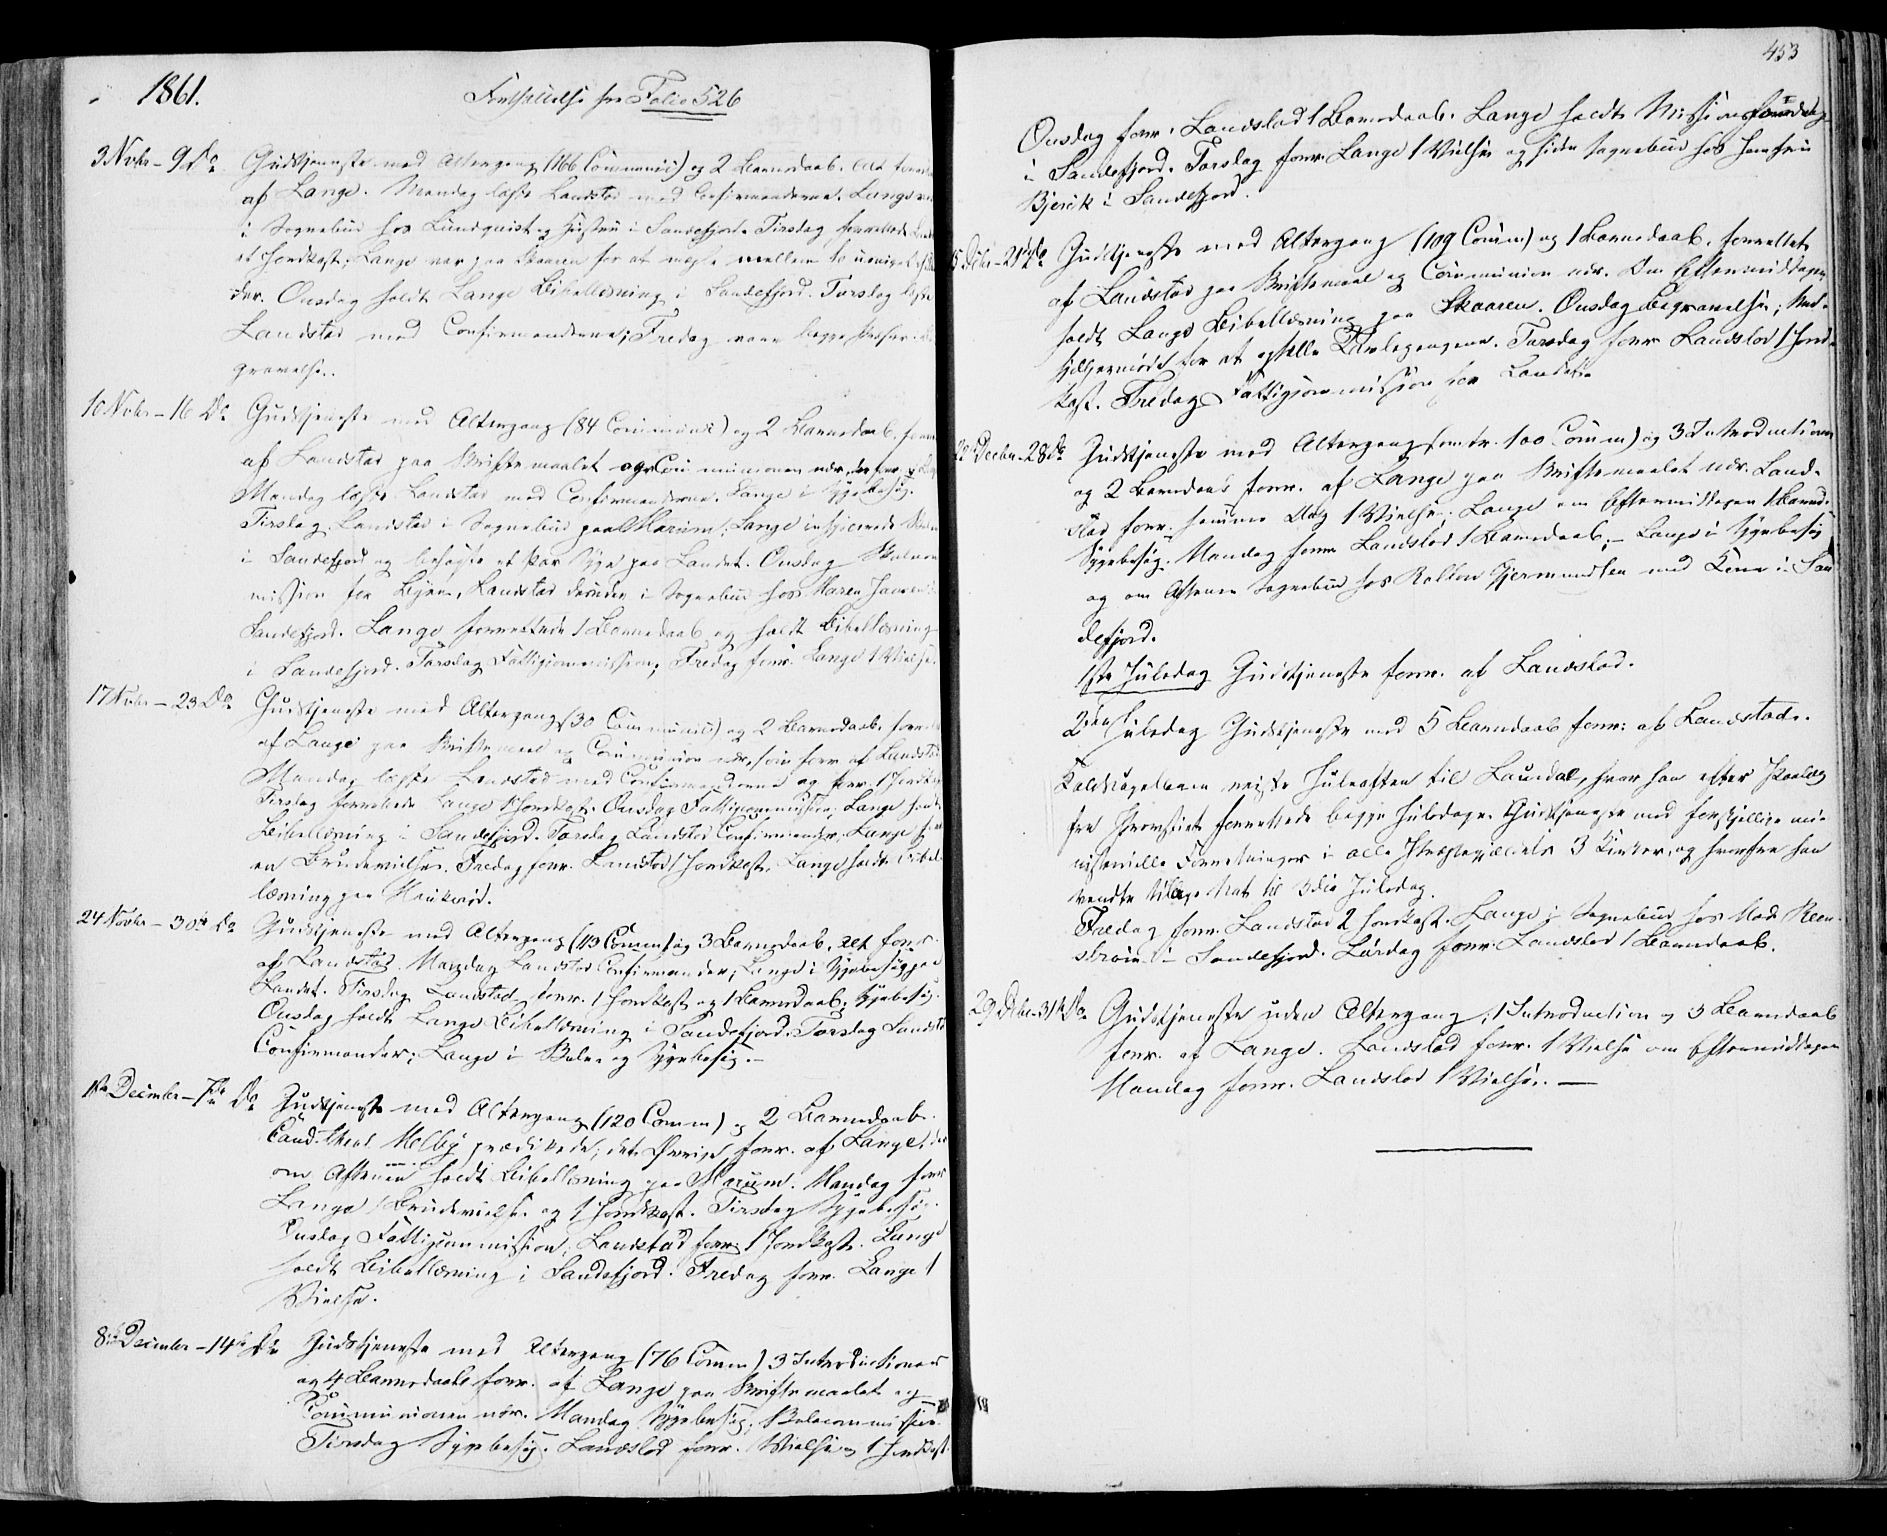 1861.
Fortsættelse fra Folio 526
3 Novbr – 9 Do
Gudstjeneste med Altergang (166 Communic) og 2 Barnedaab. Alt
af Lange. Mandag læste Landstad med Confirmanderne. Lange
i Sognebud hos Lundquist og Hustru i Sandefjord. Tirsdag forrettede
et Jordkast; Lange var paa Skaaen for at mægle mellem to uenige
der. Onsdag holdt Lange Bibellæsning i Sandefjord. Torsdag læste
Landstad med Confirmanderne; Fredag vare begge Præster
gravelse.
10 Novbr – 16 Do
Gudstjeneste med Altergang (84 Communic) og 2 Barnedaab.
af Landstad paa Skriftemaalet og Communionen nær, der forr.
Mandag læste Landstad med Confirmanderne. Lange i Sygebesøg.
Tirsdag. Landstad i Sognebud paa Marum; Lange inspicerede
i Sandefjord og besøgte et Par Syge paa Landet. Onsdag Skolecom
mission for Byen, Landstad derunder i Sognebud hos Maren Jansen i
Sandefjord. Lange forrettede 1 Barnedaab og holdt Bibellæsning
i Sandefjord. Torsdag Fattigcommission; Fredag forr. Lange 1 Vielse.
17 Novbr – 23 Do
Gudstjeneste med Altergang (30 Communic) og 2 Barnedaab.
af Lange paa Skriftemaal og Communion nær, som forr. af Landstad
Mandag læste Landstad med Confirmanderne og forr. 1 Jordkast
Tirsdag forrettede Lange 1 Jordkast. Onsdag Fattigcommission; Lange holdt
Bibellæsning i Sandefjord. Torsdag Landstad Confirmander, Lange
en Brudevielse. Fredag forr. Landstad 1 Jordkast. Lange holdt Bibel
læsning paa Haukerød.
24 Novbr – 30te Do
Gudstjeneste med Altergang (113 Comm) og 3 Barnedaab. Alt forr.
af Landstad. Mandag Landstad Confirmander; Lange i Sygebesøg paa
Landet. Tirsdag Landstad forr. 1 Jordkast og 1 Barnedaab; Sygebesøg.
Onsdag holdt Lange Bibellæsning i Sandefjord. Torsdag Landstad
Confirmander; Lange i Skole- og Sygebesøg. –
1ste December – 7de Do
Gudstjeneste med Altergang (120 Comm) og 2 Barnedaab.
Cand. theol Melby prædikede; det Øvrige forr. af Lange, der
om Aftenen holdt Bibellæsning paa Marum. Mandag forr.
Lange 1 Brudevielse og 1 Jordkast. Tirsdag Sygebesøg.
Onsdag Fattigcommission; Landstad forr. 1 Jordkast. Lange
holdt Bibellæsning i Sandefjord. Fredag forr. Lange 1
Vielse.
8de December – 14de Do
Gudstjeneste med Altergang (76 Comm) 3 Introductioner
og 4 Barnedaab forr. af Lange paa Skriftemaalet og
Communionen nær. Mandag Sygebesøg; Skolecommission.
Tirsdag Sygebesøg. Landstad forr. 1 Vielse og 1 Jordkast.
453
Onsdag forr. Landstad 1 Barnedaab. Lange holdt Missionsforedrag
i Sandefjord. Torsdag forr. Lange 1 Vielse og siden Sognebud hos
i Sandefjord.
15 Decbr – 21de Do
Gudstjeneste med Altergang (109 Comm) og 1 Barnedaab. forrettet
af Landstad paa Skriftemaal og Communion nær. Om Eftermiddagen
holdt Lange Bibellæsning paa Skaaen. Onsdag Begravelse; Med-
hjælpermøde for at Torsdag forr. Landstad 1 Jord-
kast. Fredag Fattigcommission for Landet.
22 Decbr – 28de Do
Gudstjeneste med Altergang (omtr. 100 Comm) og 3 Introductioner
og 2 Barnedaab forr. af Lange paa Skriftemaalet nær. Land-
stad forr. samme Dag 1 Vielse; Lange om Eftermiddagen 1 Barned.
Sygebesøg. Mandag forr. Landstad 1 Barnedaab; – Lange i Sygebesøg
og om Aftenen Sognebud hos Gjermundsen med Kone i San
defjord.
1ste Juledag Gudstjeneste forr. af Landstad.
2den Juledag Gudstjeneste med 5 Barnedaab forr: af Landstad.
Kaldscapellanen reiste Juleaften til Laurdal, hvor han efter
fra Provstiet forrettede begge Juledage Gudstjeneste med forskjellige mi-
nisterielle Forretninger i alle Præstegjældets 3 Kirker, og hvorfra han
vendte tilbage Nat til 3die Juledag.
Fredag forr. Landstad 2 Jordkast. Lange i Sognebud hos Mad. Reen-
strøm i Sandefjord. Lørdag forr. Landstad 1 Barnedaab.
29 Decbr – 31te Do
Gudstjeneste uden Altergang; 1 Introduction og 3 Barnedaab
forr. af Lange. Landstad forr. 1 Vielse om Eftermiddagen
Mandag forr. Landstad 1 Vielse. —